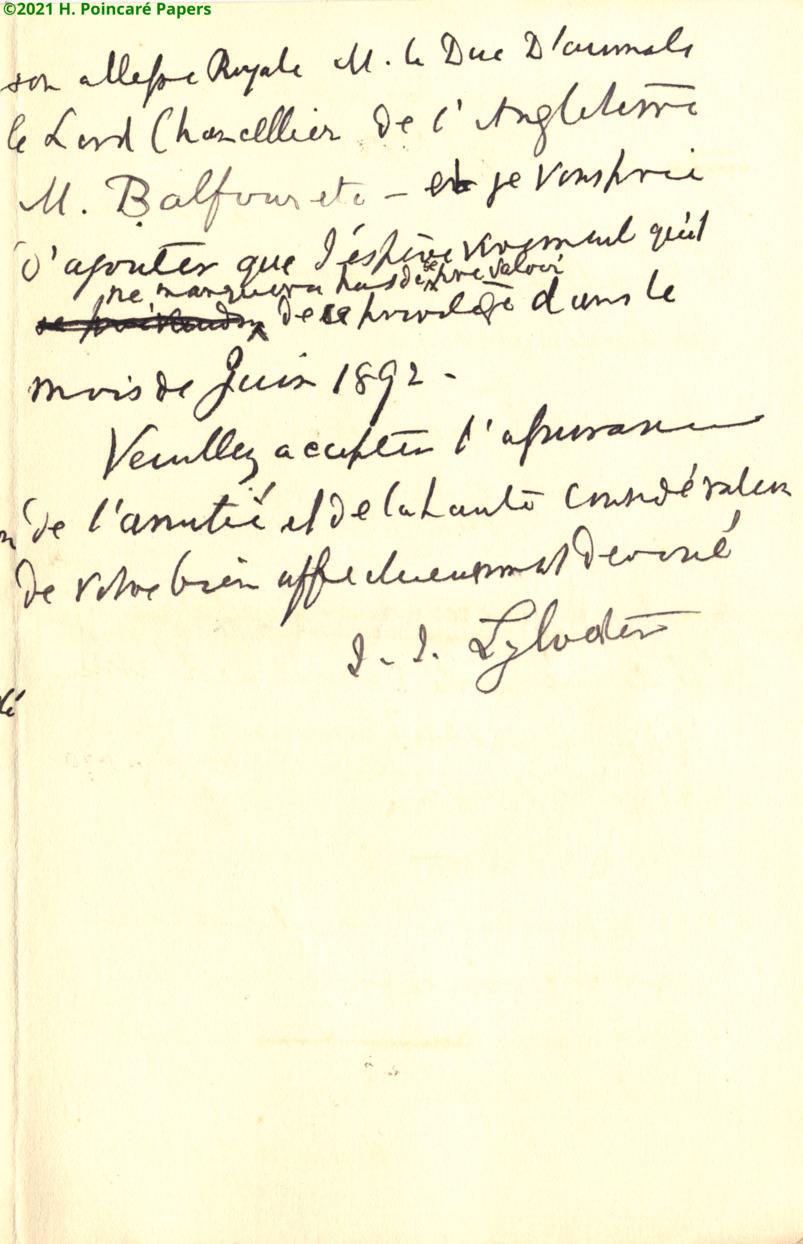 ©2021 H. Poincaré Papers
son altesse Royale M. le Duc D'aumale
le Lord Chancellier de l'Angleterre
M. Balfour etc – et je vous prie
d'ajouter que j'éspère vivement qu'il
ne manquera pas de se prevaloir
de ce privilège dans le
mois de Juin 1892 –
Veuillez accepter l'assurance
de l'amitié et de la haute considération
de votre bien affectueusement devoué
J. J. Sylvester